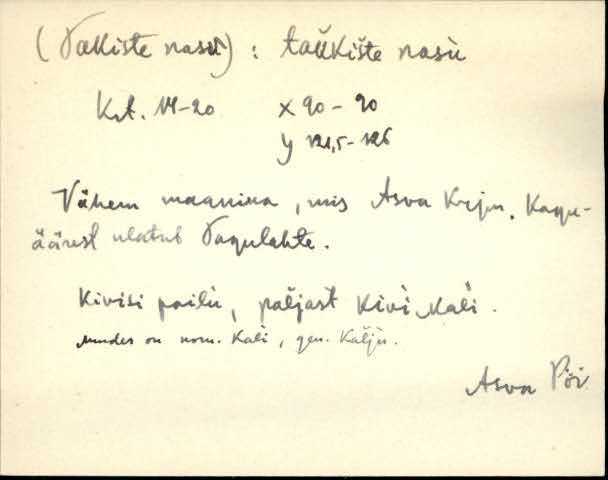 (Taukiste nasu) : taùkìšte nasù
Krt. 14-20 X 90-90
Y 121,5-126
Vähem maanina, mis Asva Krjn. Kagu-
äärest ulatub Vagulahte.
Kivisi pailu, paljast kivi kali.
Muudes on nom. Kali, gen. Kalju.
Asva Pöi